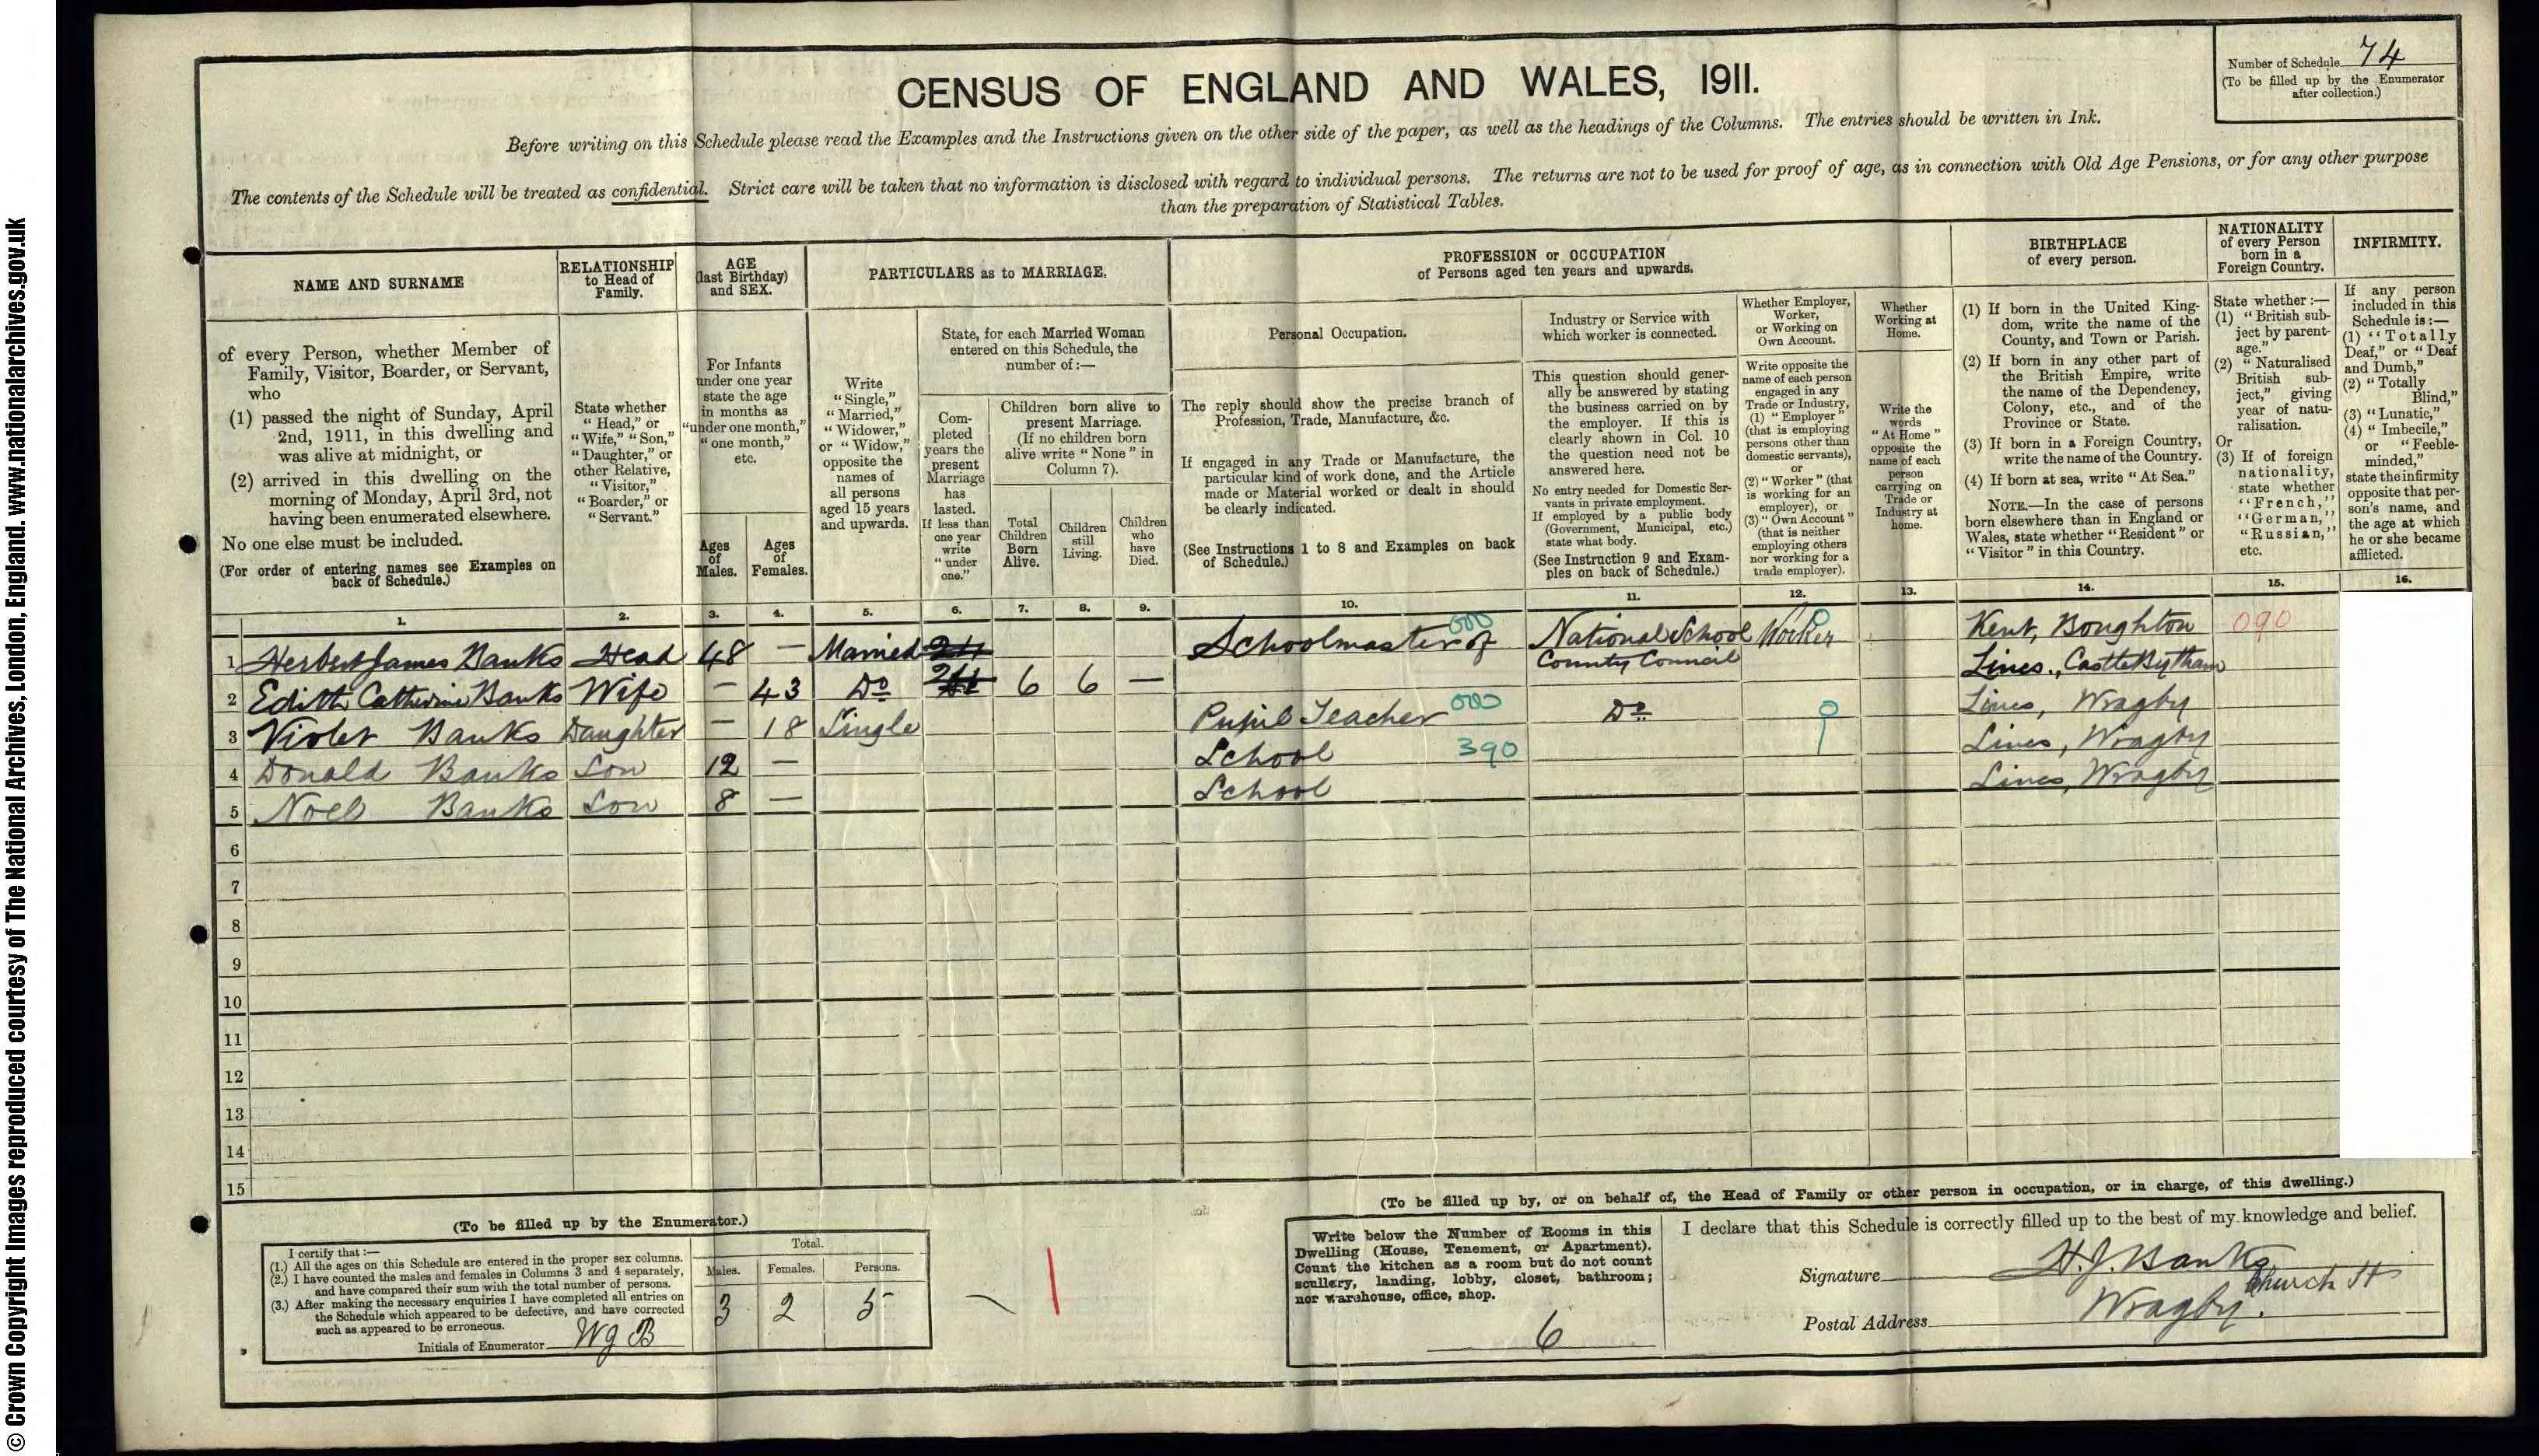 © Crown Copyright Images reproduced courtesy of The National Archives, London, England. www.nationalarchives.gov.uk
CENSUS OF ENGLAND AND WALES, 1911.
Number of Schedule 74
(To be filled up by the Enumerator
after collection.)
Before writing on this Schedule please read the Examples and the Instructions given on the other side of the paper, as well as the headings of the Columns. The entries should be written in Ink.
The contents of the Schedule will be treated as confidential. Strict care will be taken that no information is disclosed with regard to individual persons. The returns are not to be used for proof of age, as in connection with Old Age Pensions, or for any other purpose
than the preparation of Statistical Tables.
NAME AND SURNAME
of every Person, whether Member of
Family, Visitor, Boarder, or Servant,
who
(1) passed the night of Sunday, April
2nd, 1911, in this dwelling and
was alive at midnight, or
(2) arrived in this dwelling on the
morning of Monday, April 3rd, not
having been enumerated elsewhere.
No one else must be included.
(For order of entering names see Examples on
back of Schedule.)
RELATIONSHIP
to Head of
Family.
State whether
"Head," or
"Wife," "Son,"
"Daughter," or
other Relative,
"Visitor,"
"Boarder," or
"Servant."
AGE
(last Birthday)
and SEX.
For Infants
under one year
state the age
in months as
"under one month,"
"one month,"
etc.
Ages
of
Males.
Ages
of
Females.
PARTICULARS as to MARRIAGE.
Write
"Single,"
"Married,"
"Widower,"
or "Widow,"
opposite the
names of
all persons
aged 15 years
and upwards.
State, for each Married Woman
entered on this Schedule, the
number of:—
Com-
pleted
years the
present
Marriage
has
lasted.
If less than
one year
write
"under
one."
Children born alive to
present Marriage.
(If no children born
alive write "None" in
Column 7).
Total
Children
Born
Alive.
Children
still
Living.
Children
who
have
Died.
PROFESSION or OCCUPATION
of Persons aged ten years and upwards.
Personal Occupation.
The reply should show the precise branch of
Profession, Trade, Manufacture, &c.
If engaged in any Trade or Manufacture, the
particular kind of work done, and the Article
made or Material worked or dealt in should
be clearly indicated.
(See Instructions 1 to 8 and Examples on back
of Schedule.)
Industry or Service with
which worker is connected.
This question should gener-
ally be answered by stating
the business carried on by
the employer. If this is
clearly shown in Col. 10
the question need not be
answered here.
No entry needed for Domestic Ser-
vants in private employment.
If employed by a public body
(Government, Municipal, etc.)
state what body.
(See Instruction 9 and Exam-
ples on back of Schedule.)
Whether Employer,
Worker,
or Working on
Own Account.
Write opposite the
name of each person
engaged in any
Trade or Industry,
(1) "Employer"
(that is employing
persons other than
domestic servants),
or
(2) "Worker" (that
is working for an
employer), or
(3) "Own Account"
(that is neither
employing others
nor working for a
trade employer).
Whether
Working at
Home.
Write the
words
"At Home"
opposite the
name of each
person
carrying on
Trade or
Industry at
home.
BIRTHPLACE
of every person.
(1) If born in the United King-
dom, write the name of the
County, and Town or Parish.
(2) If born in any other part of
the British Empire, write
the name of the Dependency,
Colony, etc., and of the
Province or State.
(3) If born in a Foreign Country,
write the name of the Country.
(4) If born at sea, write "At Sea."
NOTE.—In the case of persons
born elsewhere than in England or
Wales, state whether "Resident" or
"Visitor" in this Country.
NATIONALITY
of every Person
born in a
Foreign Country.
State whether:—
(1) "British sub-
ject by parent-
age."
(2) "Naturalised
British sub-
ject," giving
year of natu-
ralisation.
Or
(3) If of foreign
nationality,
state whether
"French,"
"German,"
"Russian,"
etc.
INFIRMITY.
If any person
included in this
Schedule is:—
(1) "Totally
Deaf," or "Deaf
and Dumb,"
(2) "Totally
Blind,"
(3) "Lunatic,"
(4) "Imbecile,"
or "Feeble-
minded,"
state the infirmity
opposite that per-
son's name, and
the age at which
he or she became
afflicted.
1. 2. 3. 4. 5. 6. 7. 8. 9. 10. 11. 12. 13. 14. 15. 16.
1 Herbert James Banks Head 48 — Married Schoolmaster of 000 National School County Council Worker Kent, Boughton 090
2 Edith Catherine Banks Wife — 43 Do 6 6 — Lincs., Castle Bytham
3 Violet Banks Daughter — 18 Single Pupil Teacher 000 Do Lincs, Wragby
4 Donald Banks Son 12 — School 390 Lincs, Wragby
5 Noel Banks Son 8 — School Lincs, Wragby
6
7
8
9
10
11
12
13
14
15
(To be filled up by the Enumerator.)
I certify that:—
(1.) All the ages on this Schedule are entered in the proper sex columns.
(2.) I have counted the males and females in Columns 3 and 4 separately,
and have compared their sum with the total number of persons.
(3.) After making the necessary enquiries I have completed all entries on
the Schedule which appeared to be defective, and have corrected
such as appeared to be erroneous.
Initials of Enumerator WgB
Total.
Males. Females. Persons.
3 2 5
(To be filled up by, or on behalf of, the Head of Family or other person in occupation, or in charge, of this dwelling.)
Write below the Number of Rooms in this
Dwelling (House, Tenement, or Apartment).
Count the kitchen as a room but do not count
scullery, landing, lobby, closet, bathroom;
nor warehouse, office, shop.
6
I declare that this Schedule is correctly filled up to the best of my knowledge and belief.
Signature H.J. Banks
Church St
Postal Address Wragby.